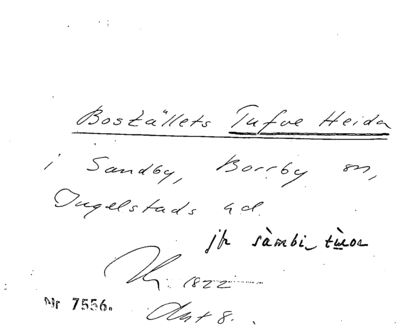 Boställets Tufve Heida
i Sandby, Borrby sn,
Ingelstads hd.
jfr sàmbi tùvor
1822
Akt 8.
Nr 7556.